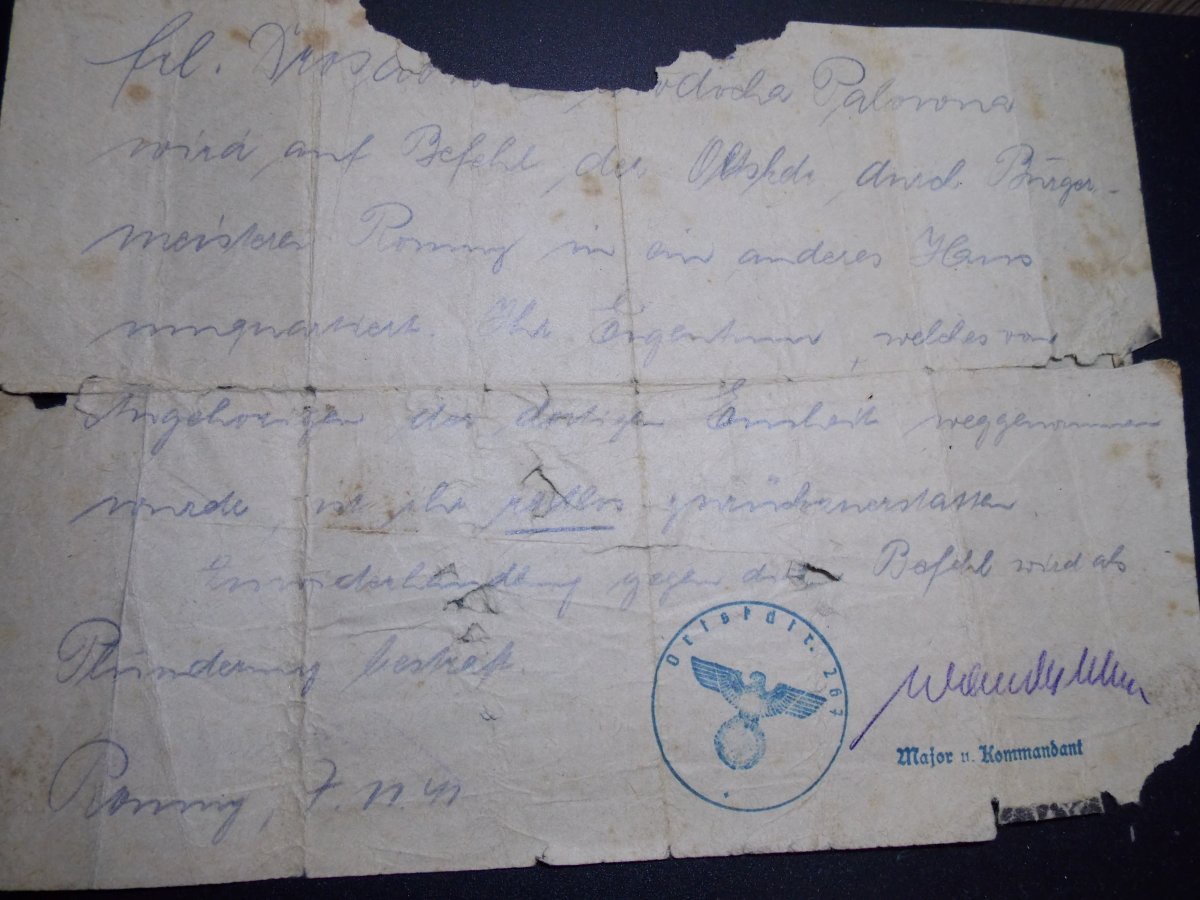 frl. Palovona
wird auf Befehl der Ortskdr durch Bürger-
meisterei Romny in ein anderes Haus
umquartiert. Ihr Eigentum, welches von
Angehörigen der dortigen Einheit weggenommen
wurde, ist ihr restlos zurückzuerstatten
gegen diesen Befehl wird als
Plünderung bestraft.
Ortskdtr. 267
Major u. Kommandant
Romny, 7. 11 41